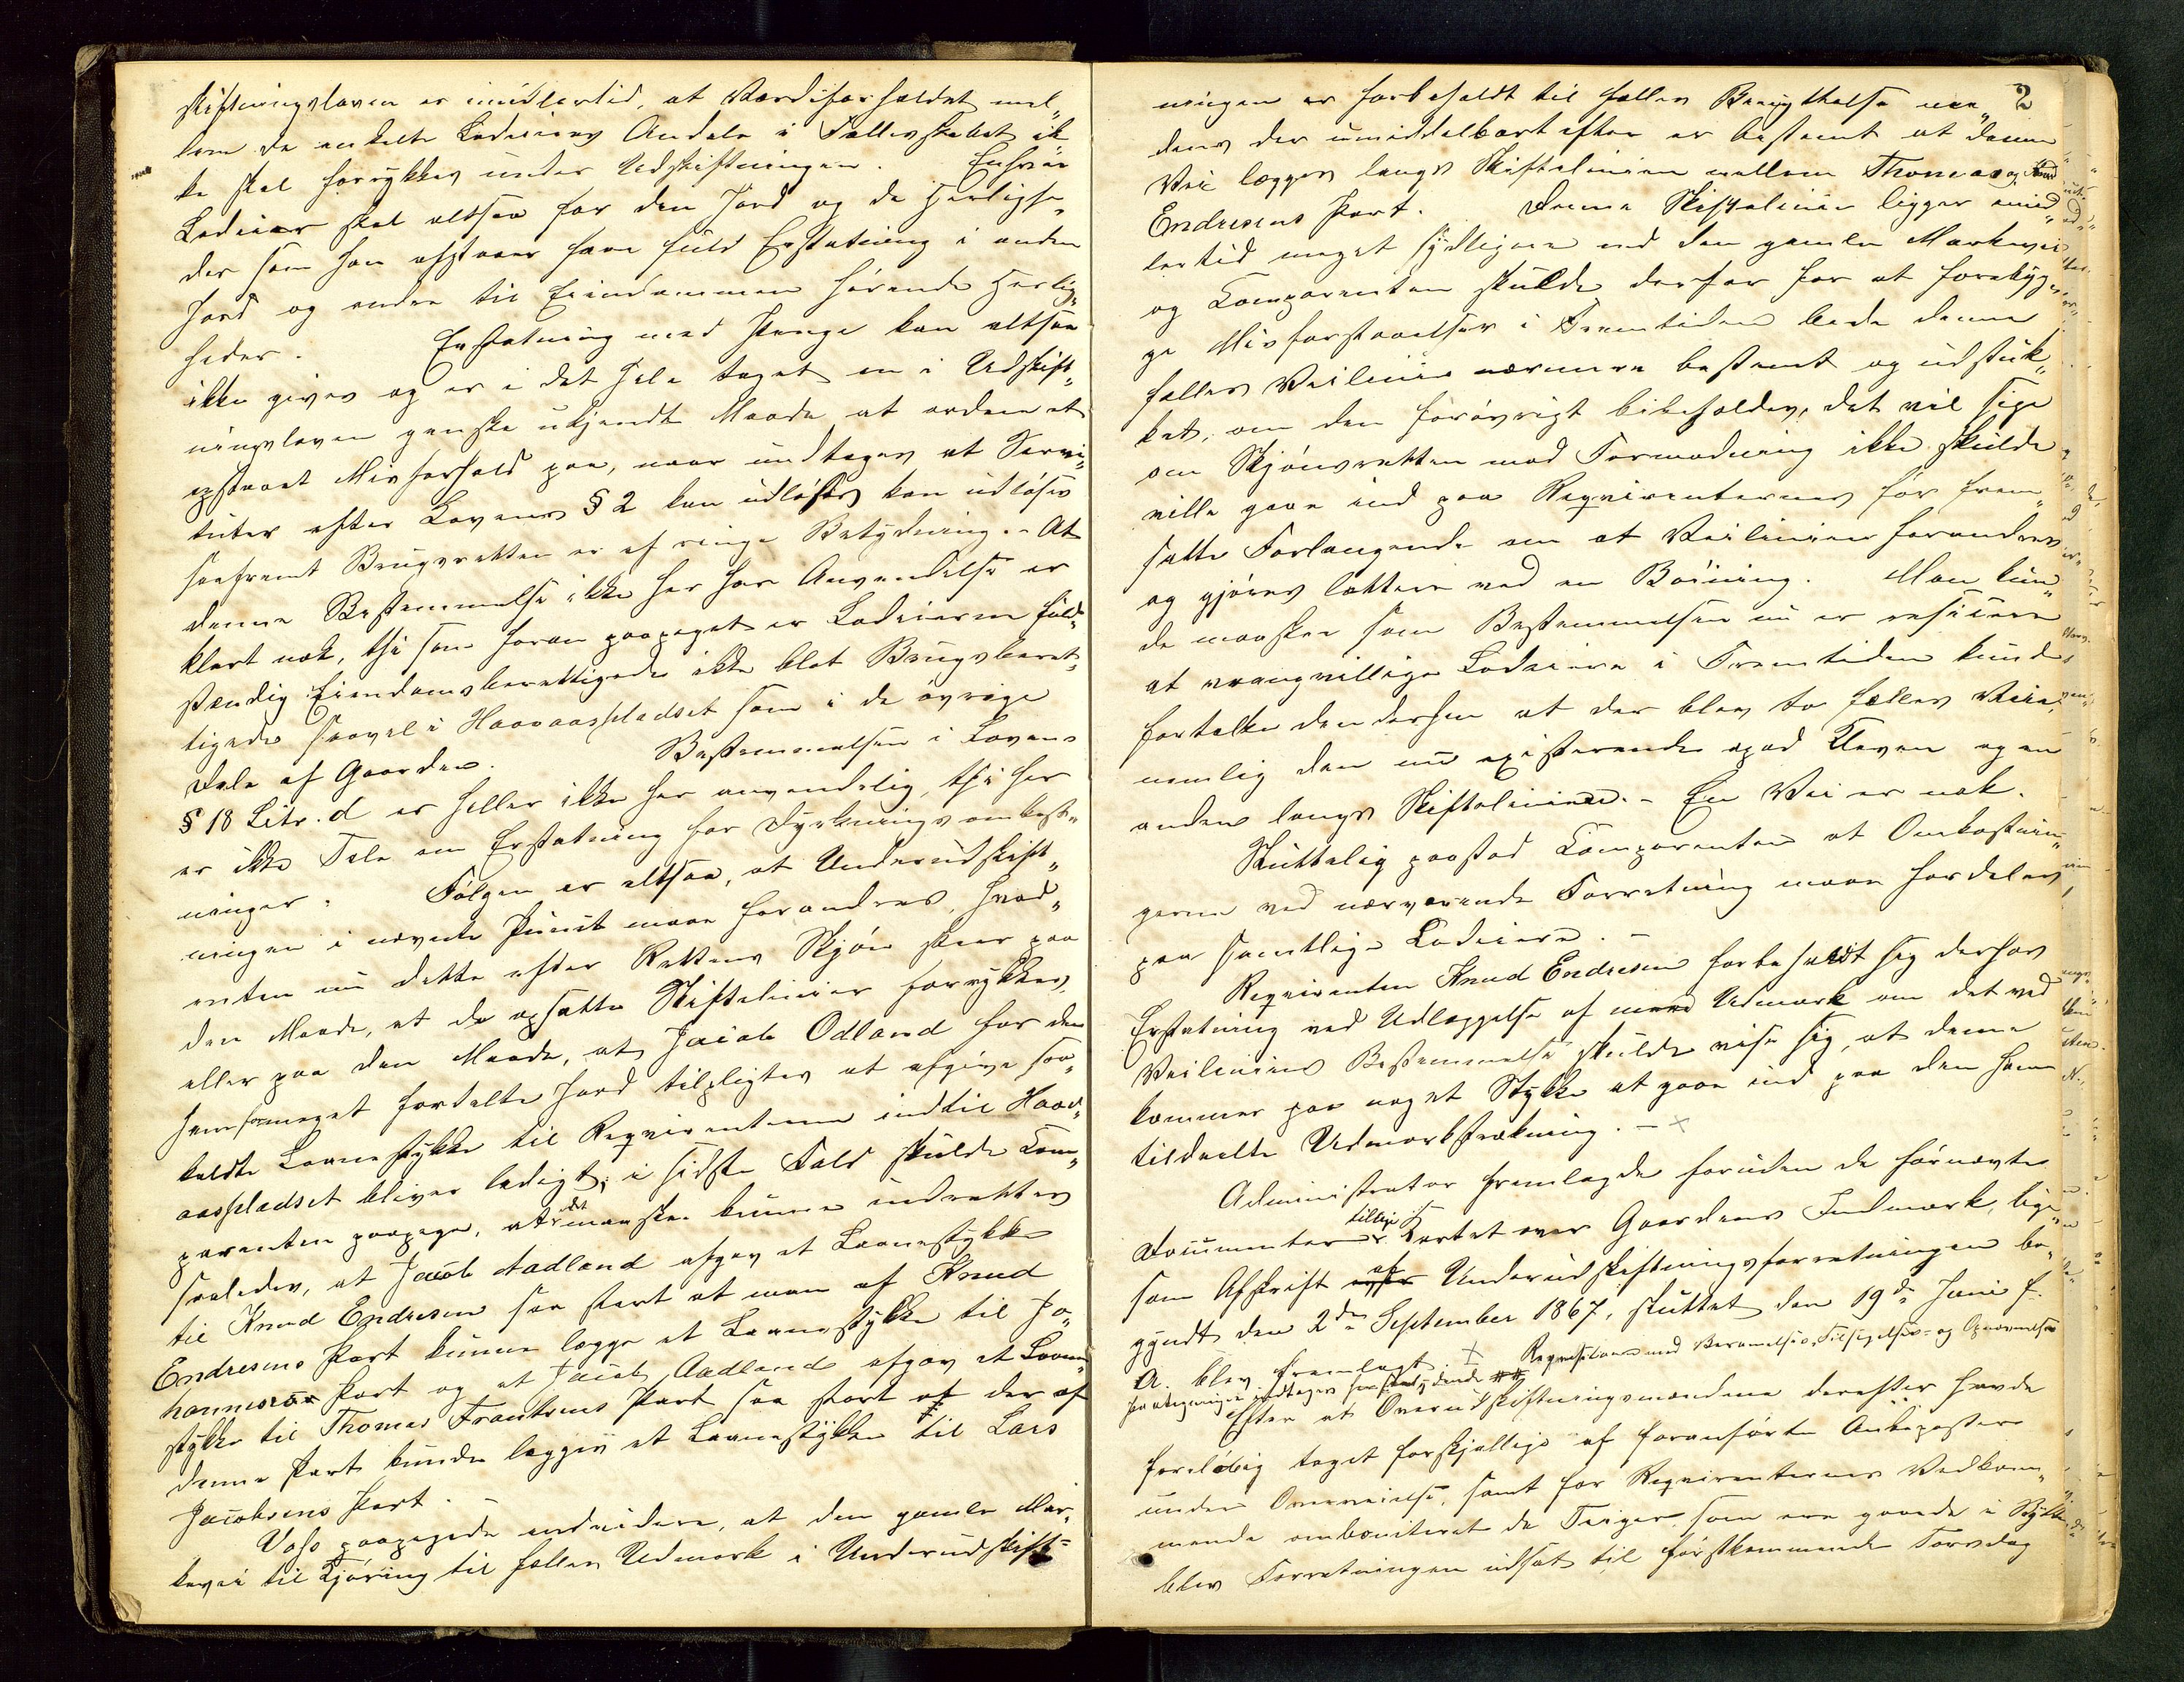 skiftningsloven er imidlertid, at Værdiforholdet mel„
lem de enkelte Lodeieres Andele i Fællesskabet ik„
ke skal forrykkes under Udskiftningen. Enhver
Lodeier skal altsaa for den Jord og de Herlighe„
der som han afstaaer have fuld Erstatning i anden
Jord og andre til Eiendommen hørende Herlig„
heder. Erstatning med Penge kan altsaa
ikke gives og er i det Hele taget en i Udskift„
ningsloven ganske ukjendt Maade at ordne et
opstaaet Misforhold paa, naar undtages at Servi„
tuter efter Lovens § 2 kan udløses kan udløses
saafremt Brugsretten er af ringe Betydning. - At
denne Bestemmelse ikke her har Anvendelse er
klart nok, thi som foran paapeget er Lodeierne fuld„
stændig Eiendomsberettigede ikke blot Brugsberet„
tigede saavel i Haavaaspladset som i de øvrige
Dele af Gaarden. Bestemmelsen i Lovens
§ 18 Litr. d er heller ikke her anvendelig, thi her
er ikke Tale om Erstatning for Dyrkningsomkost„
ninger. Følgen er altsaa, at Underudskift„
ningen i nævnte Punkt maa forandres, hvad„
enten nu dette efter Rettens Skjøn skeer paa
den Maade, at de opsatte Skiftelinier forrykkes,
eller paa den Maade, at Jacob Odland for den
ham formeget fordelte Jord tilpligtes at afgive saa„
kaldte Laanestykke til Reqvirenterne indtil Haav„
aaspladset bliver ledigt; i sidste Fald skulde Com„
parenten paapege, at det maaskee kunne indrettes
saaledes, at Jacob Aadland afgav et Laanestykke
til Knud Endresen saa stort at man af Knud
Endresens Part kunne lægge et Laanestykke til Jo„
hannes Part og at Jacob Aadland afgav et Laane„
stykke til Thomas Frantzens Part saa stort at der af
denne Part kunde lægges et Laanestykke til Lars
Jacobsens Part.
Voss paapegede endvidere, at den gamle Mar„
kevei til Kjøring til fælles Udmark i Underudskift=
2
ningen er forbeholdt til fælles Benyttelse me„
dens der umiddelbart efter er bestemt at denne
Vei lægges langs Skiftelinien mellem Thomas og Knud
Endresens Part. Denne Skiftelinie ligger imid„
lertid meget sydligere end den gamle Markevei
og Comparenten skulde derfor for at forebyg„
ge Misforstaaelser i Fremtiden bede denne
fælles Veilinie nærmere bestemt og udstuk„
ket, om den forøvrigt bibeholdes, det vil sige
om Skjønsretten mod Formodning ikke skulde
ville gaae ind paa Reqvirenternes før frem„
satte Forlangende om at Veilinien forandres
og gjøres lettere ved en Bøining. Man kun„
de maaskee som Bestemmelsen nu er
at vrangvillige Lodeiere i Fremtiden kunde
fortolke den derhen at der blev to fælles Veie,
nemlig den nu existerende opad Kleven og en
anden langs Skiftelinien. - En Vei er nok.
Sluttelig paastod Comparenten at Omkostnin„
gerne ved nærværende Forretning maa fordeles
paa samtlige Lodeiere. -
Reqvirenten Knud Endresen forbeholdt sig derhos
Erstatning ved Udlæggelse af mere Udmark om det ved
Veiliniens Bestemmelse skulde vise sig, at denne
kommer paa noget Stykke at gaae ind paa den ham
tildeelte Udmarkstrækning. - ×
Administrator fremlagde foruden de førnævnte
Documenter tillige Kartet over Gaardens Indmark, lige„
som Afskrift af Underudskiftningsforretningen be„
gyndt den 2den September 1867, sluttet den 19de Juni f.
A. blev fremlagt. × Reqvisitionen med Berammelses, Tilsigelses= og Opnævnelses
paategninger
Efter at Overudskiftningsmændene derefter havde
foreløbig taget forskjellige af foranførte Ankeposter
under Overveielse, samt for Reqvirenternes Vedkom„
mende omboniteret de Teiger som ere gaaede i Bytte
blev Forretningen udsat til førstkommende Torsdag